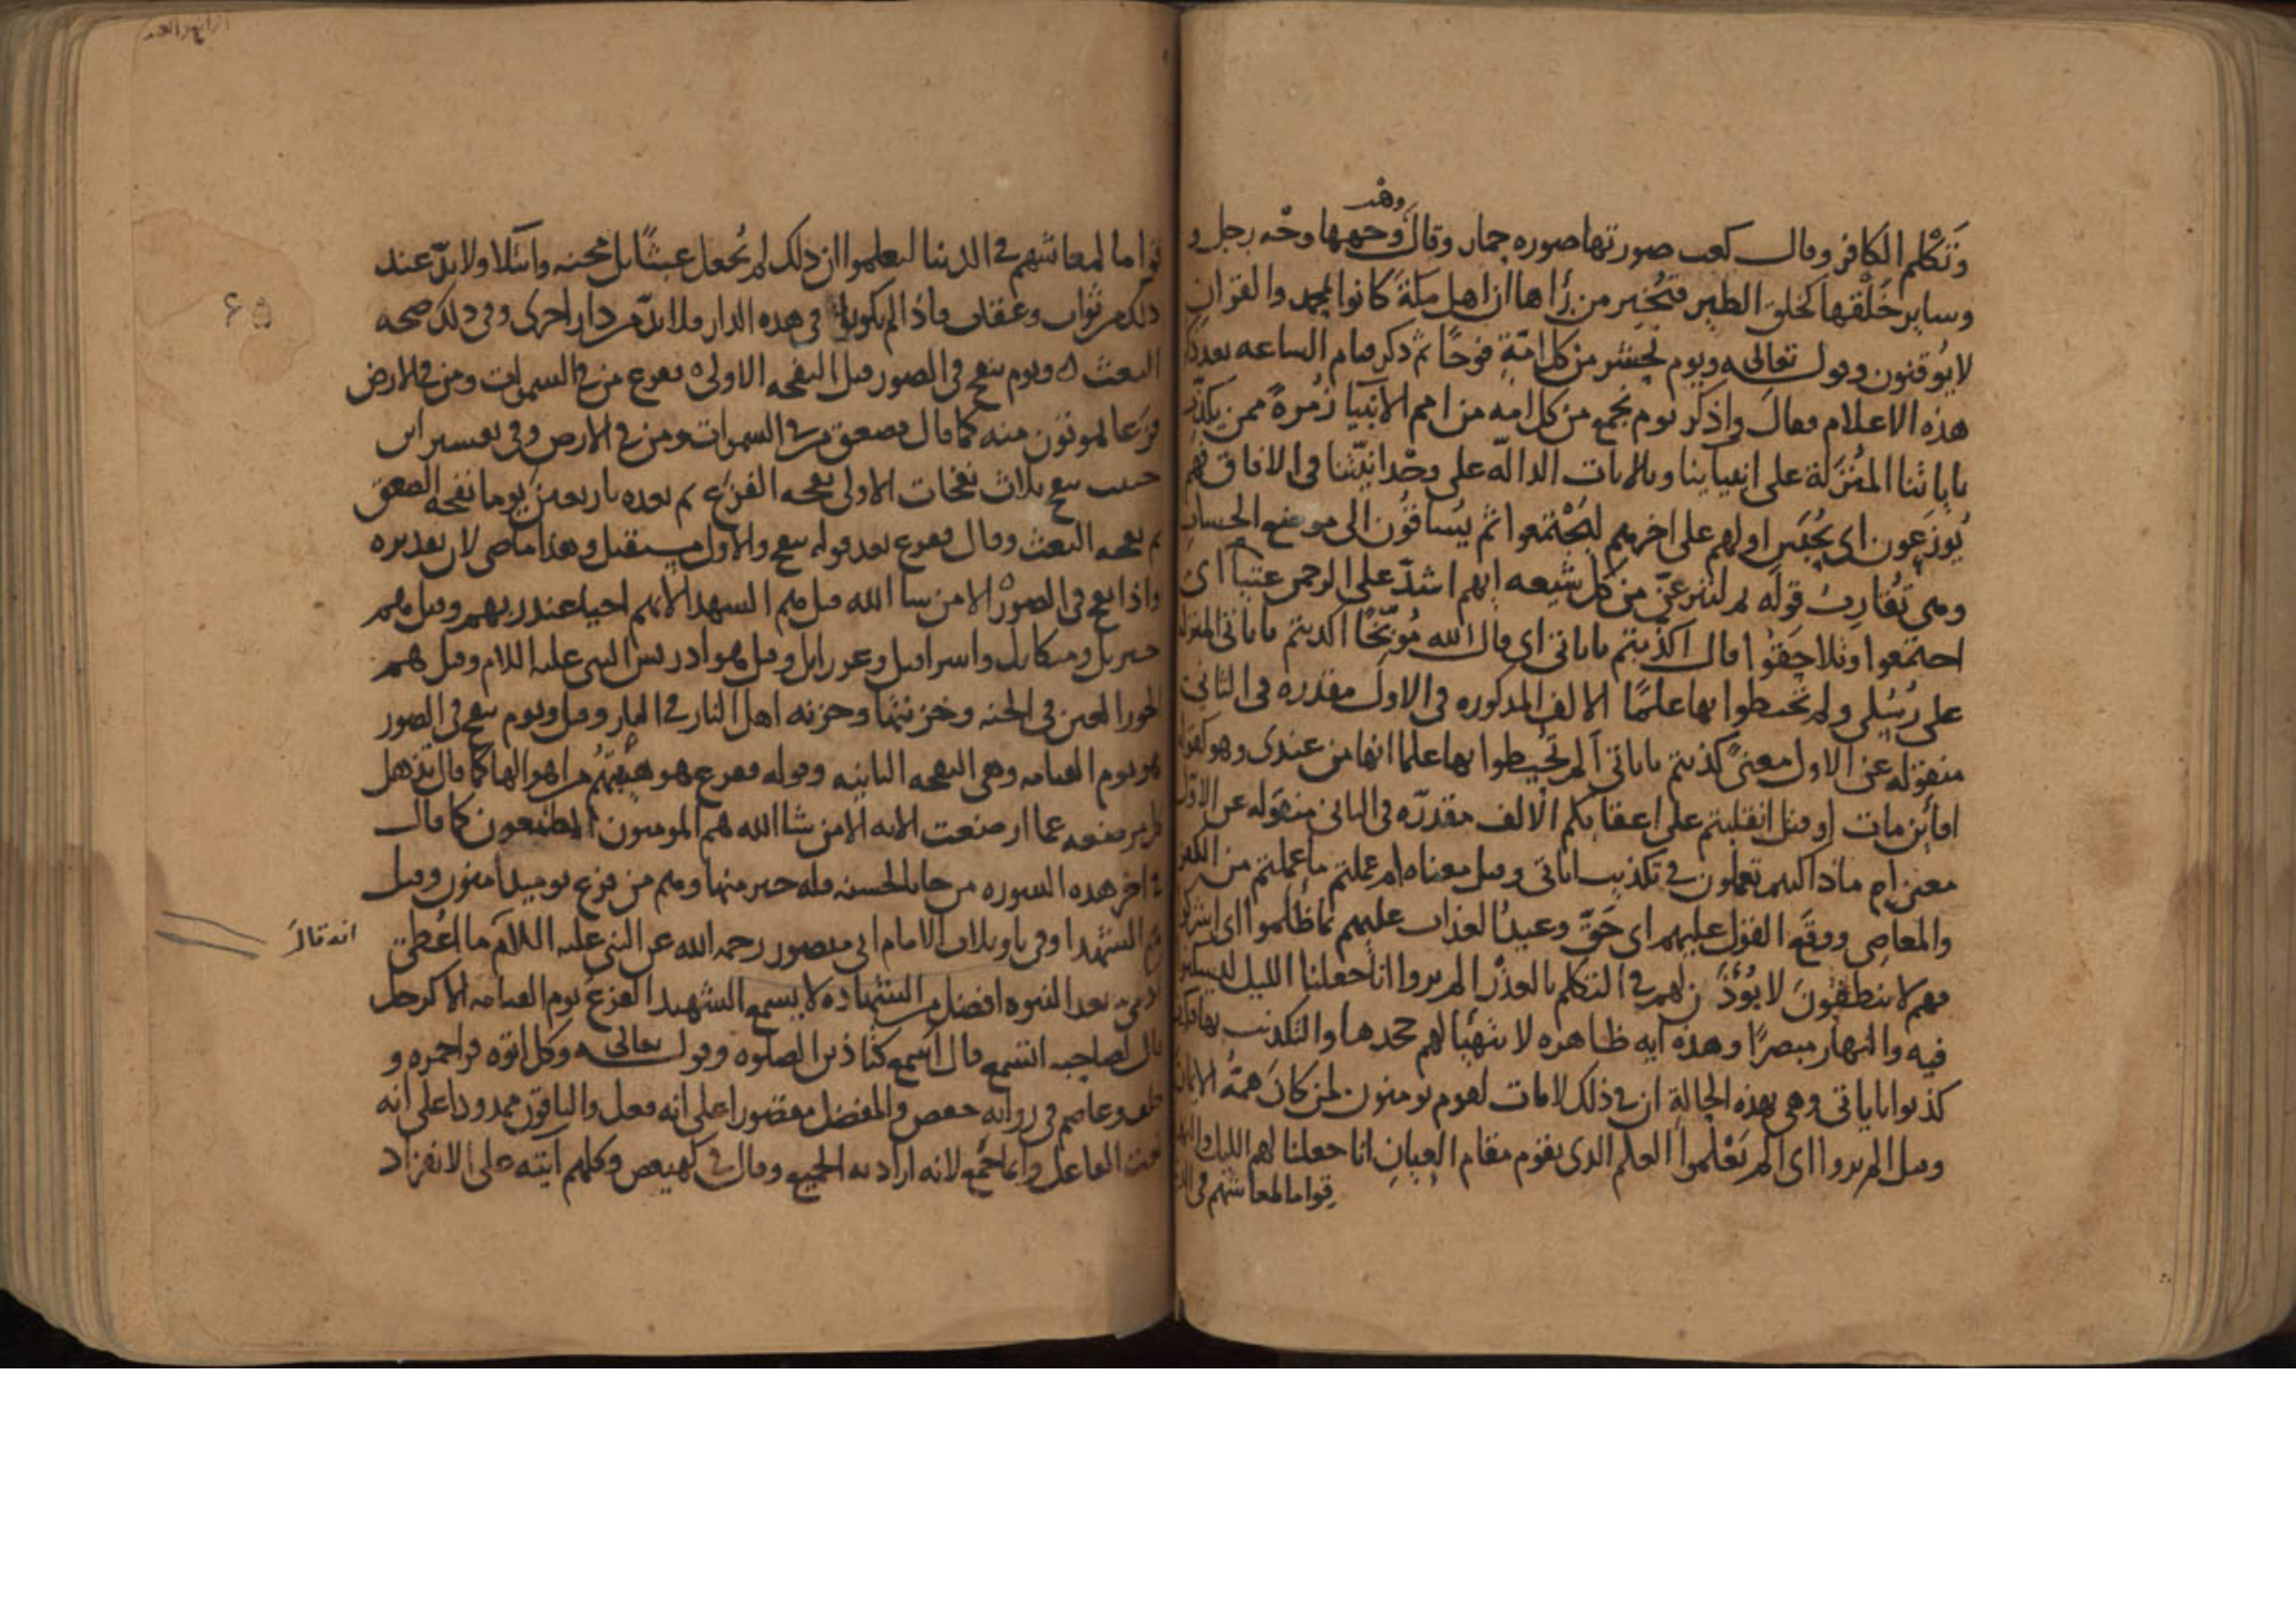 وهب
وتكلم الكافر وقال كعب صورتها صوره حمار وقال وجهها وجه رجل و
وساير خلقها كخلق الطير فتخبر من راها ان اهل مكة كانوا بمحمد والقران
لا يوقنون وقوله تعالى ويوم نحشر من كل امة فوجا ثم ذكر قيام الساعه بعد ذكر
هذه الاعلام فقال واذكر يوم نجمع من كل امه من امم الانبيا زمرة ممن يكذب
باياتنا المنزلة على انبياينا وبالايات الدالة على وحدانيتنا في الافاق فهم
يوزعون اي يحبس اولهم على اخرهم ليجتمعوا ثم يساقون الى موضع الحساب
ومن تقارب قوله ثم لننزعن من كل شيعه ايهم اشد على الرحمن عتيا اي
اجتمعوا وتلاحقوا قال اكذبتم باياتي اي قال الله موبخا اكذبتم باياتي المنزلة
على رسلي ولم تحيطوا بها علما الالف المذكوره في الاول مقدره في الثاني
منقوله عن الاول معنى كذبتم باياتي الم تحيطوا بها علما انها من عندي وهو كقوله
افاين مات او قتل انقلبتم على اعقابكم الالف مقدرة في الثاني منقوله عن الاول
معنى ام ماذا كنتم تعملون في تكذيب اياتي وقيل معناه ام عملتم ما عملتم من الكفر
والمعاصي ووقع القول عليهم اي حق وعيد العذاب عليهم بما ظلموا اي اشركوا
فهم لا ينطقون لا يؤذن لهم في التكلم بالعذر الم يروا انا جعلنا الليل ليسكنوا
فيه والنهار مبصرا وهذه ايه ظاهره لا يتهيا لهم جحدها والتكذيب بها
كذبوا باياتي وهي بهذه الحالة ان في ذلك لايات لقوم يومنون لمن كان همة الايمان
وقيل الم يروا اي الم تعلموا العلم الذي يقوم مقام العيان انا جعلنا لهم الليل والنهار
قواما لمعاشهم في
قواما لمعاشهم في الدنيا ليعلموا ان ذلك لم يجعل عبثا بل محنه وابتلا ولا بد عند
ذلك من ثواب وعقاب فاذا لم يكونا في هذه الدار فلا بد من دار اخرى وفي ذلك صحه
البعث ويوم ينفخ في الصور قيل النفخه الاولى ففزع من في السموات ومن في الارض
فزعا يموتون منه كما قال فصعق من في السموات ومن في الارض وفي تفسير ابن
حبيب ينفخ ثلاث نفخات الاولى نفخه الفزع ثم بعده باربعين يوما نفخه الصعق
ثم نفخه البعث وقال ففزع بعد قوله ينفخ والاول مستقبل وهذا ماضي لان تقديره
واذا نفخ في الصور الا من شا الله قيل هم الشهدا لانهم احيا عند ربهم وقيل هم
جبريل وميكايل واسرافيل وعزرايل وقيل هو ادريس النبي عليه السلام وقيل هم
الحور العين في الجنه وخزنتها وخزنه اهل النار في النار وقيل ويوم ينفخ في الصور
هو يوم القيامه وهي النفخه الثانيه وقوله ففزع هو هيبتهم من اهوالها كما قال تذهل
كل مرضعه عما ارضعت الايه الا من شا الله هم المومنون المطيعون كما قال
في اخر هذه السوره من جا بالحسنه فله خير منها وهم من فزع يوميذ امنون وقيل
هم الشهدا وفي تاويلات الامام ابي منصور رحمه الله عن النبي عليه السلام ما اعطي
انه قال
بعد النبوه افضل من الشهاده لا يسمع الشهيد الفزع يوم القيامه الا كرجل
قال لصاحبه اتسمع قال اسمع كتاذين الصلوه وقوله تعالى وكل اتوه قرا حمزه و
خلف وعاصم في روايه حفص والمفضل مقصورا على انه فعل والباقون ممدودا على انه
نعت الفاعل وانما جمع لانه اراد به الجميع وقال في كهيعص وكلهم آتيه على الانفراد
۶۵